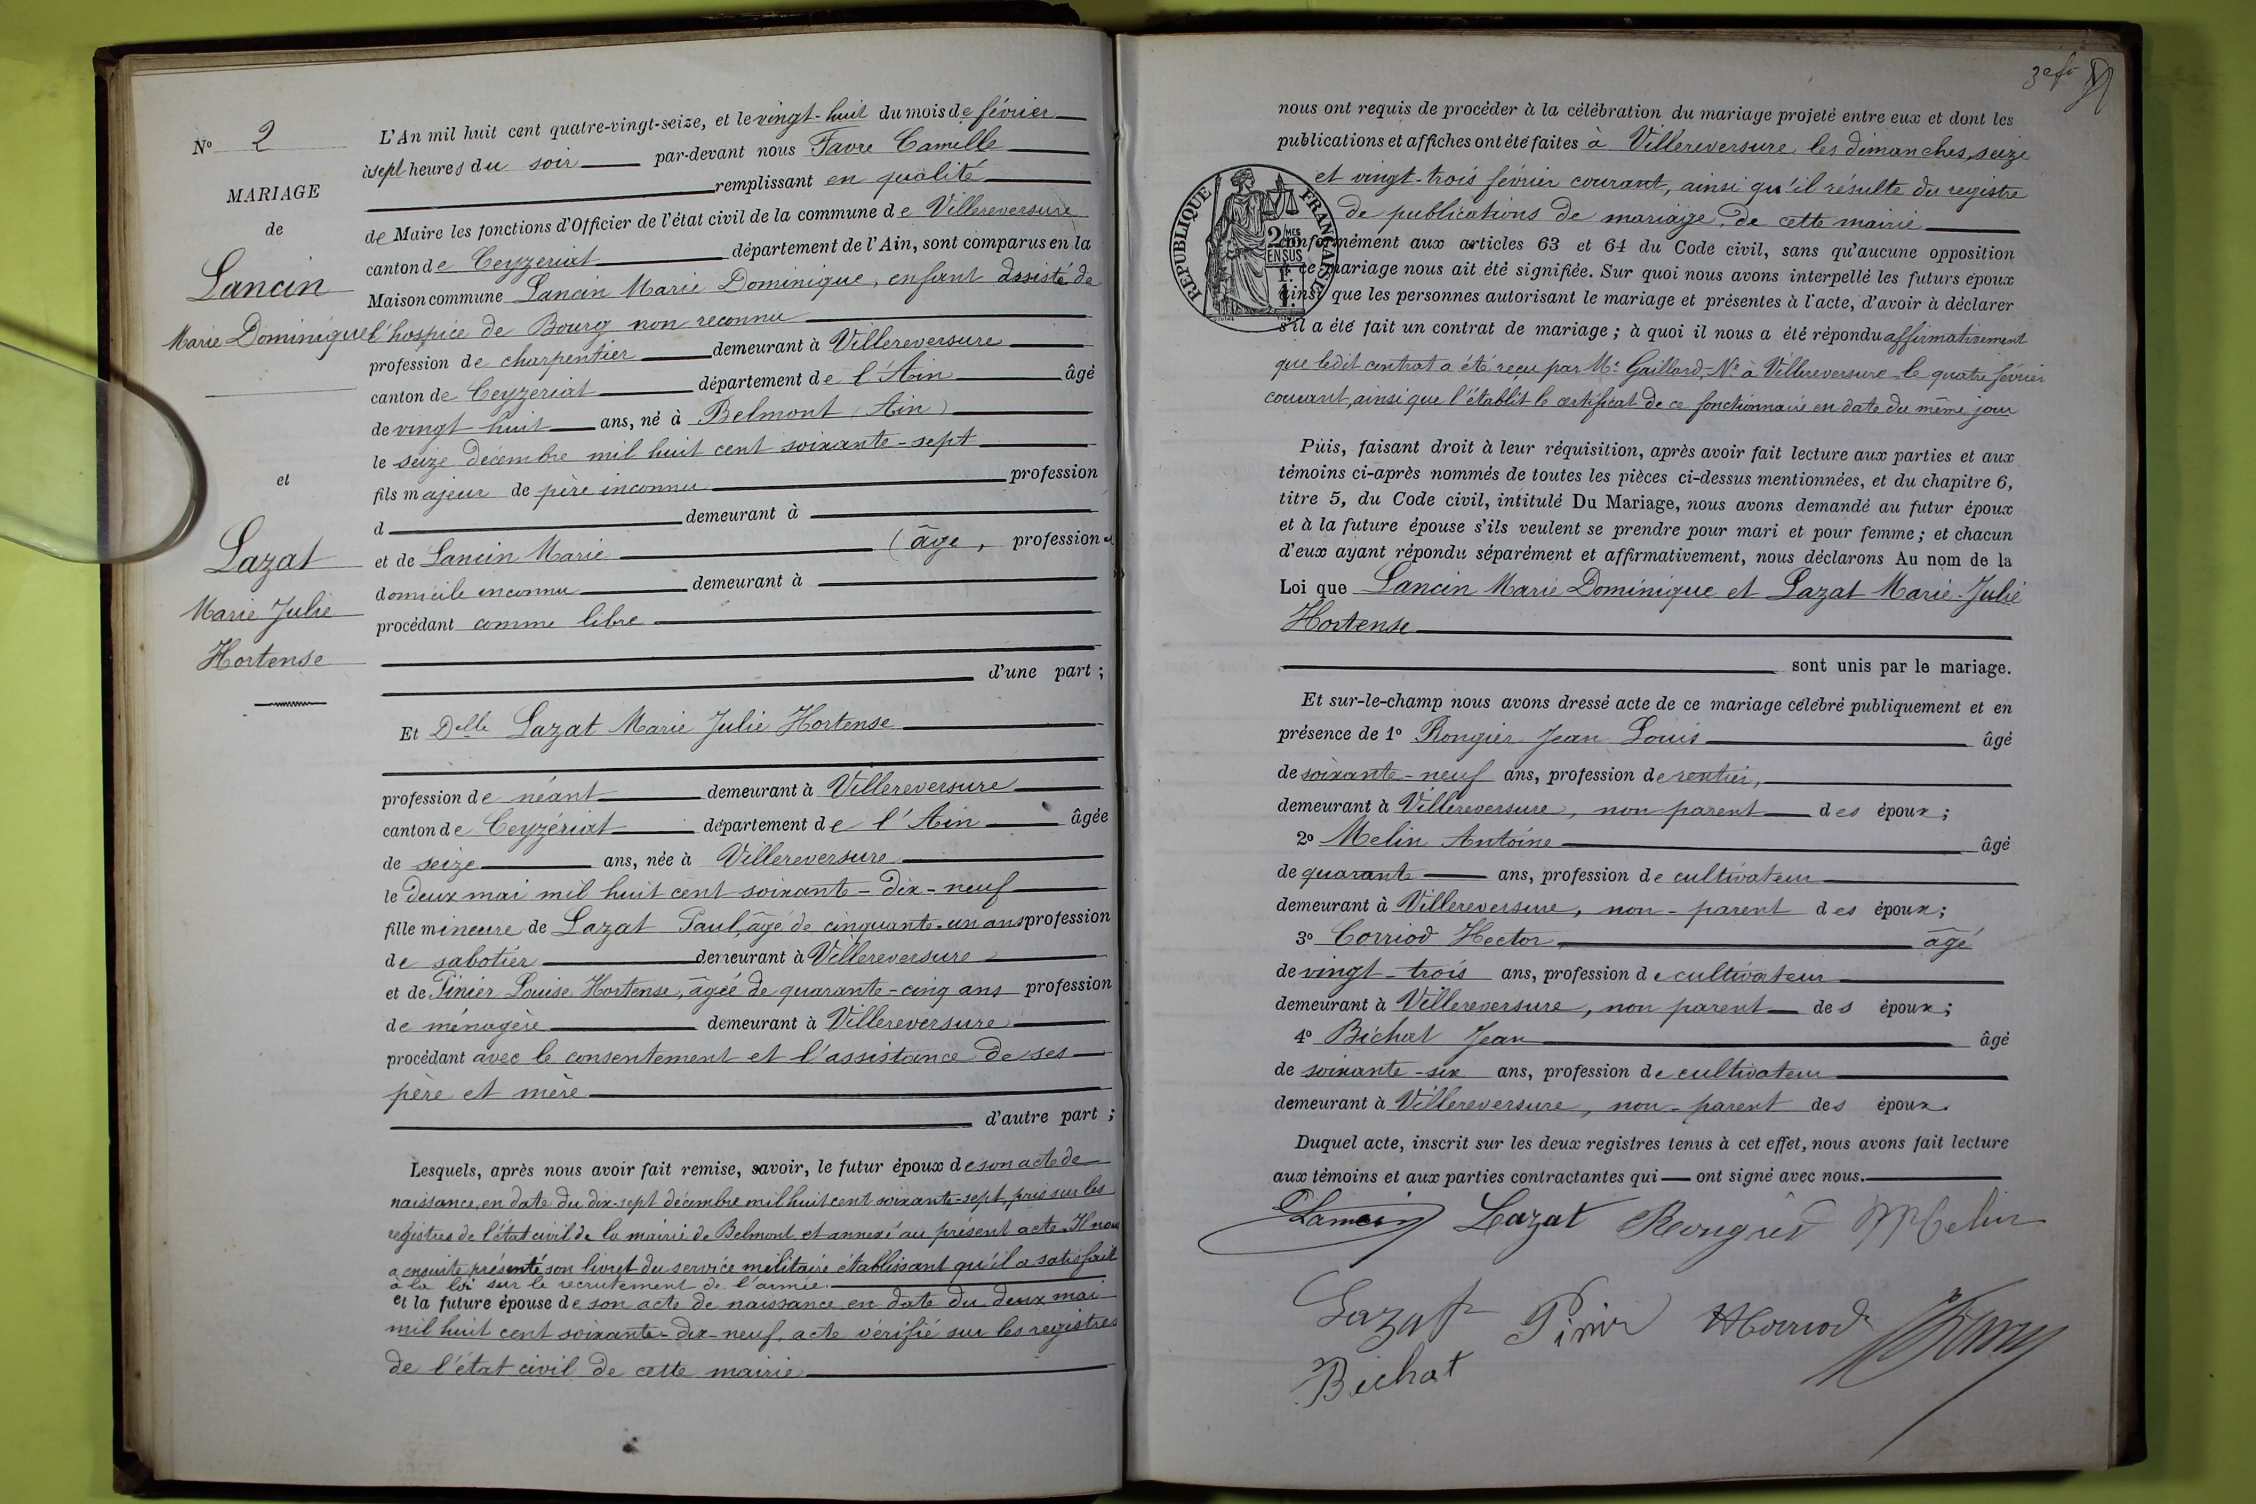 N° 2
MARIAGE
de
Lancin
Marie Dominique
et
Lazat
Marie Julie
Hortense
L'An mil huit cent quatre-vingt-seize, et le vingt-huit du mois de février
à sept heures du soir par-devant nous Favre Camille
remplissant en qualité
de Maire les fonctions d'Officier de l'état civil de la commune de Villereversure
canton de Ceyzeriat département de l'Ain, sont comparus en la
Maison commune Lancin Marie Dominique, enfant assisté de
l'hospice de Bourg non reconnu
profession de charpentier demeurant à Villereversure
canton de Ceyzeriat département de l'Ain âgé
de vingt huit ans, né à Belmont (Ain)
le seize décembre mil huit cent soixante-sept
fils majeur de père inconnu profession
d demeurant à
et de Lancin Marie (âge, profession et
domicile inconnu demeurant à
procédant comme libre
d'une part ;
Et Delle Lazat Marie Julie Hortense
profession de néant demeurant à Villereversure
canton de Ceyzériat département de l'Ain âgée
de seize ans, née à Villereversure
le deux mai mil huit cent soixante-dix-neuf
fille mineure de Lazat Paul, âgé de cinquante-un ans profession
de sabotier demeurant à Villereversure
et de Pinier Louise Hortense, âgée de quarante-cinq ans profession
de ménagère demeurant à Villereversure
procédant avec le consentement et l'assistance de ses
père et mère
d'autre part ;
Lesquels, après nous avoir fait remise, savoir, le futur époux de son acte de
naissance, en date du dix-sept décembre mil huit cent soixante-sept, pris sur les
registres de l'état civil de la mairie de Belmont et annexé au présent acte. Il nous
a ensuite présenté son livret du service militaire établissant qu'il a satisfait
à la loi sur le recrutement de l'armée.
et la future épouse de son acte de naissance en date du deux mai
mil huit cent soixante-dix-neuf, acte vérifié sur les registres
de l'état civil de cette mairie
3e fo
nous ont requis de procéder à la célébration du mariage projeté entre eux et dont les
publications et affiches ont été faites à Villereversure les dimanches, seize
et vingt-trois février courant, ainsi qu'il résulte du registre
de publications de mariage de cette mairie
RÉPUBLIQUE FRANÇAISE
2 MES
EN SUS
conformément aux articles 63 et 64 du Code civil, sans qu'aucune opposition
à ce mariage nous ait été signifiée. Sur quoi nous avons interpellé les futurs époux
ainsi que les personnes autorisant le mariage et présentes à l'acte, d'avoir à déclarer
s'il a été fait un contrat de mariage ; à quoi il nous a été répondu affirmativement
que ledit contrat a été reçu par Me Gaillard, Nre à Villereversure le quatre février
courant, ainsi que l'établit le certificat de ce fonctionnaire en date du même jour
Puis, faisant droit à leur réquisition, après avoir fait lecture aux parties et aux
témoins ci-après nommés de toutes les pièces ci-dessus mentionnées, et du chapitre 6,
titre 5, du Code civil, intitulé Du Mariage, nous avons demandé au futur époux
et à la future épouse s'ils veulent se prendre pour mari et pour femme ; et chacun
d'eux ayant répondu séparément et affirmativement, nous déclarons Au nom de la
Loi que Lancin Marie Dominique et Lazat Marie-Julie
Hortense
sont unis par le mariage.
Et sur-le-champ nous avons dressé acte de ce mariage célébré publiquement et en
présence de 1° Rongier Jean Louis âgé
de soixante-neuf ans, profession de rentier,
demeurant à Villereversure, non parent des époux ;
2° Melin Antoine âgé
de quarante ans, profession de cultivateur
demeurant à Villereversure, non-parent des époux ;
3° Corriod Hector âgé
de vingt-trois ans, profession de cultivateur
demeurant à Villereversure, non parent des époux ;
4° Bichat Jean âgé
de soixante-six ans, profession de cultivateur
demeurant à Villereversure, non-parent des époux.
Duquel acte, inscrit sur les deux registres tenus à cet effet, nous avons fait lecture
aux témoins et aux parties contractantes qui ont signé avec nous.
Lancin Lazat Rongier Melin
Lazat Pinier HCorriod Favre
Bichat